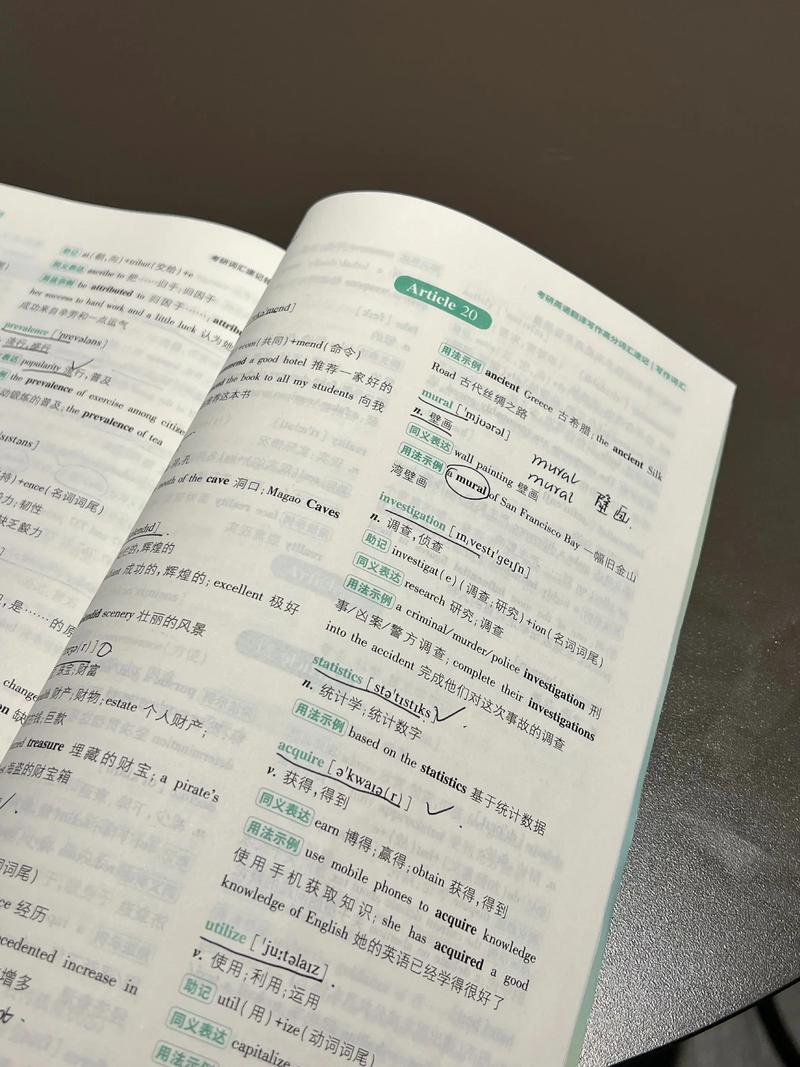 助记 at(朝,向)+tribut(交给)+e
考研词汇速记
同义表达 ascribe to 把……归于;归因于
用法示例 be attributed to 归因于……;
her success to hard work and a little luck 认为她
成功来自辛劳和一点运气
prevalence ['prevələns]
流行,盛行
popularity 流行,普及
the prevalence of exercise among
动锻炼的普及; the prevalence of tea
+ence(名词词尾)
力;韧性
缺乏毅力
是……的
change
(共同)+mend(命令)
a good hotel 推荐一家好的
the book to all my students 向我
荐这本书
of the cave 洞口; Magao Caves
的,辉煌的
成功的,辉煌的; excellent 极好
scenery 壮丽的风景
珠宝;财富
财产;财物; estate 个人财产;
巨款
treasure 埋藏的财宝; a pirate's
海盗的财宝箱
词词尾)
经历
increase in
增多
考研英语翻译写作高分词汇速记 | 写作词汇
Article 20
用法示例 ancient Greece 古希腊; the ancient Silk
Road 古代丝绸之路
mural ['mjʊərəl]
n. 壁画
同义表达 wall painting 壁画
mural
mural 壁画
用法示例 a mural of San Francisco Bay 一幅旧金山
湾壁画
investigation [ɪnˌvestɪ'ɡeɪʃn]
n. 调查,侦查
助记 investigat(e)(调查;研究)+ion(名词词尾)
同义表达 research 研究;调查
用法示例 a criminal/murder/police investigation 刑
事/凶案/警方调查; complete their investigations
into the accident 完成他们对这次事故的调查
statistics [stə'tɪstɪks]
n. 统计学;统计数字
用法示例 based on the statistics 基于统计数据
acquire [ə'kwaɪə(r)]
v. 获得,得到
同义表达 earn 博得;赢得; obtain 获得,得到
用法示例 use mobile phones to acquire knowledge
使用手机获取知识; she has acquired a good
knowledge of English 她的英语已经学得很好了
utilize ['juːtəlaɪz]
v. 使用;利用;运用
助记 util(用)+ize(动词词尾)
同义表达 capitalize
用法示例